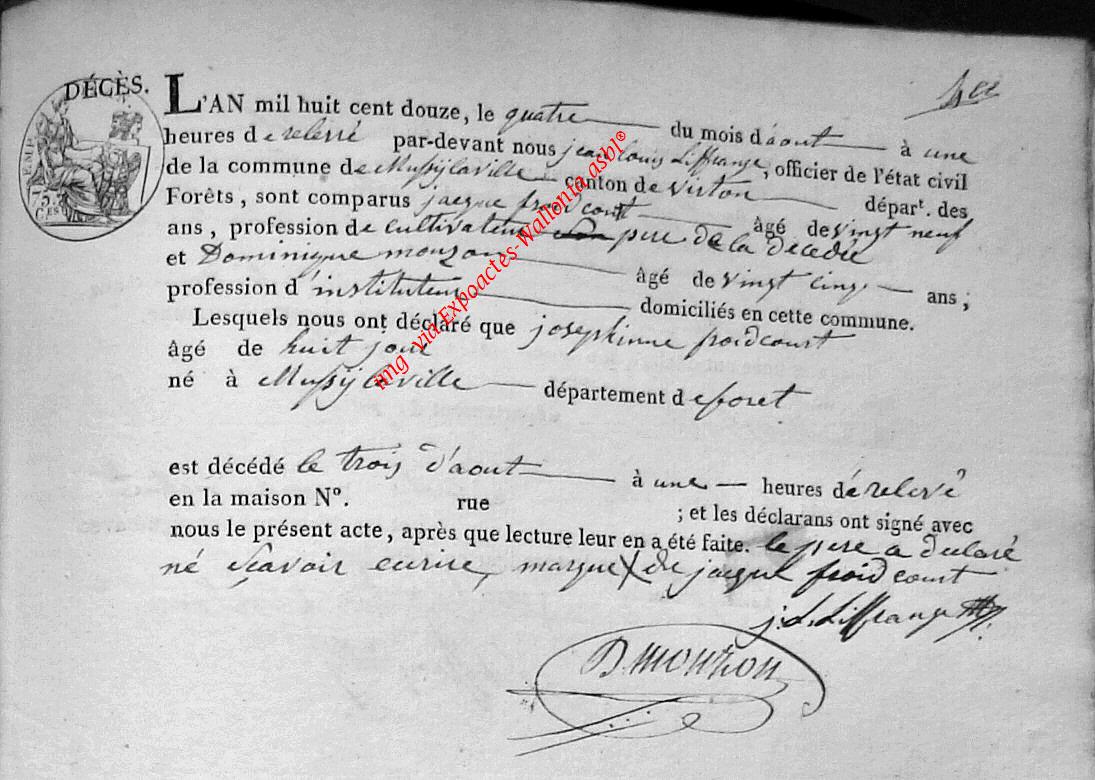 DÉCÈS.
L'AN mil huit cent douze, le quatre du mois d'aout à une
heures de relevé par-devant nous jean louis Liffrange, officier de l'état civil
de la commune de Mussÿlaville canton de virton départ. des
Forêts, sont comparus jacque froidcourt âgé de vingt neuf
ans, profession de cultivateur pere de la décédée
et Dominique mouzon âgé de vingt cinq ans;
profession d'instituteur domiciliés en cette commune.
Lesquels nous ont déclaré que josephinne froidcourt
âgé de huit jour
né à Mussÿlaville département de foret
est décédé le trois d'aout à une heures de relevé
en la maison N°. rue ; et les déclarans ont signé avec
nous le présent acte, après que lecture leur en a été faite. le pere a déclaré
né sçavoir ecrire, marque X de jacque froidcourt
j. L. Liffrange
D. mouzon
img via Expoactes-Wallonia asbl®